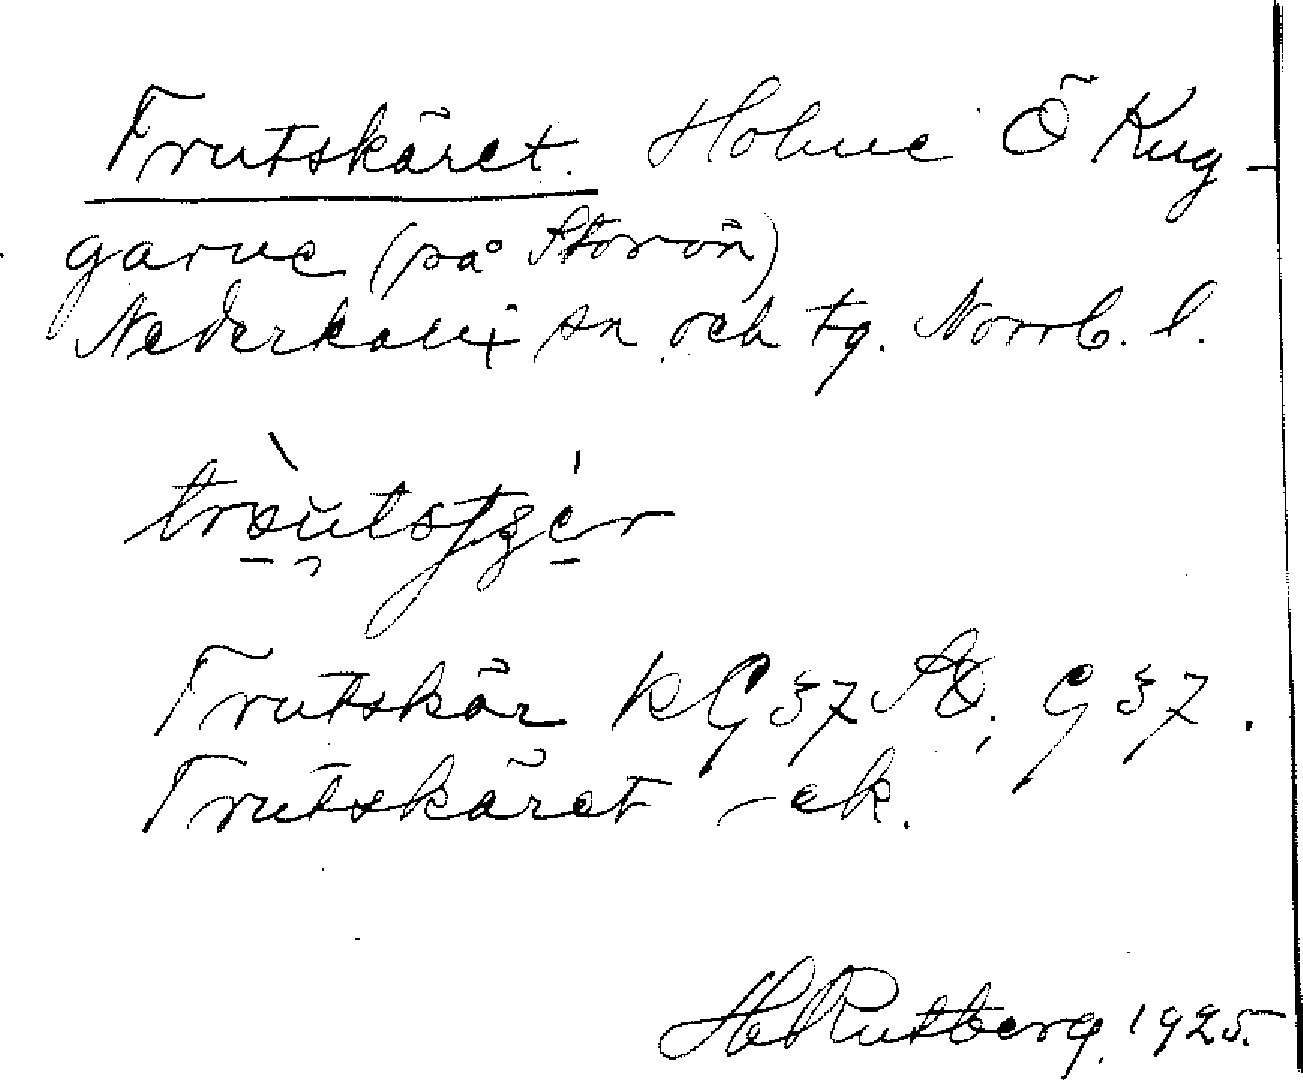 Trutskäret. Holme Ö Rug-
garne (på Storön)
Nederkalix sn och tg. Norrb. l.
Trutskär k G 37 G 37.
Trutskäret -ek.
H Rutberg. 1925.